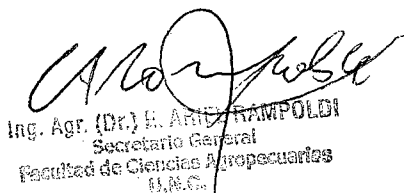 Ing. Agr. (Dr.) E. ARIEL RAMPOLDI
Secretario General
Facultad de Ciencias Agropecuarias
U.N.C.